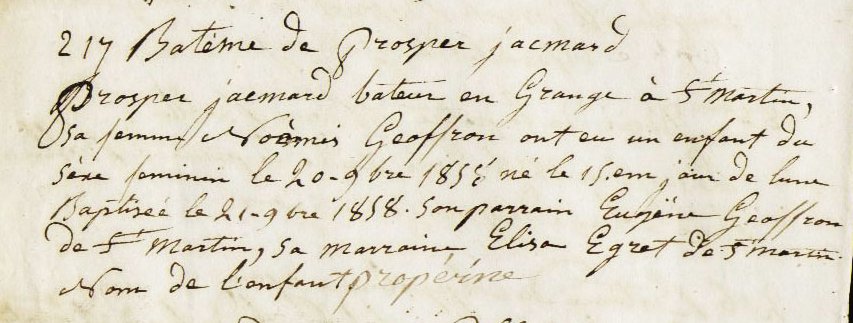 217 Batême de Prosper jacmard
Prosper jacmard bateur en Grange à St Martin,
sa femme Noëmis Geoffron ont eu un enfant du
sèxe feminin le 20-9bre 1858 né le 15.em jour de lune
Baptiseé le 21-9bre 1858. son parrain Eugène Geoffron
de St Martin, sa marraine Elisa Egret de St Martin.
Nom de l'enfant propérine